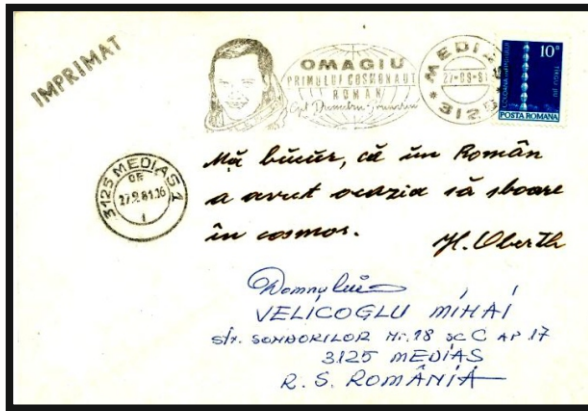 IMPRIMAT
OMAGIU
PRIMULUI COSMONAUT
ROMÂN
3125
10B
POSTA ROMANA
3125 MEDIAS 1
Mă bucur, că un Român
a avut ocazia să sboare
în cosmos.
H. Oberth
Domnului
VELICOGLU MIHAI
str. SONDORILOR Nr. 18 sc C AP 17
3125 MEDIAS
R. S. ROMÂNIA